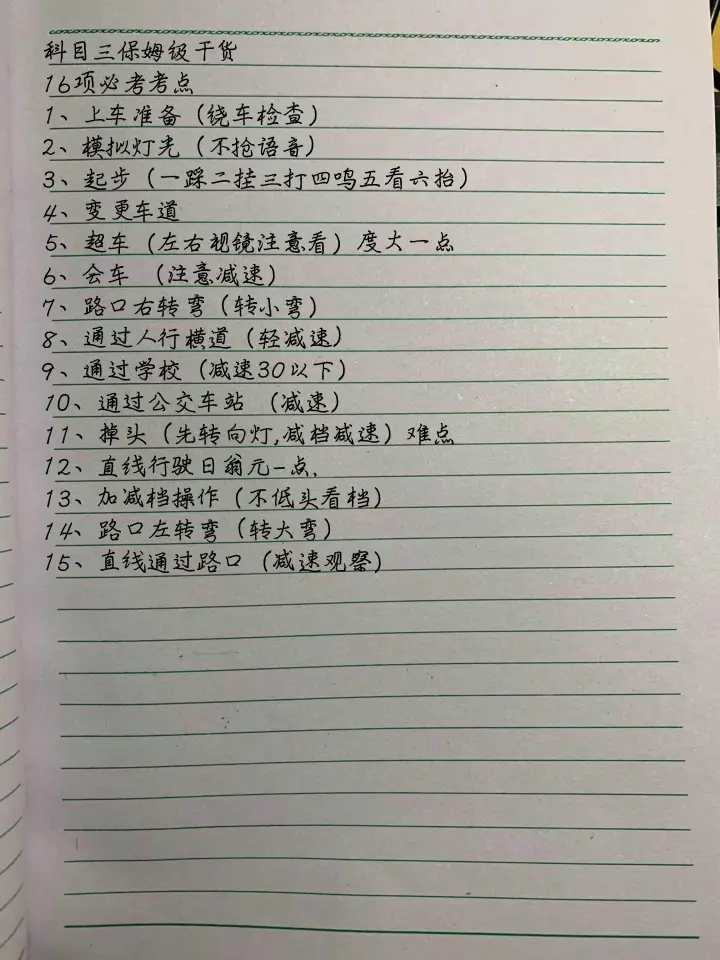 科目三保姆级干货
16项必考考点
1、上车准备（绕车检查）
2、模拟灯光（不抢语音）
3、起步（一踩二挂三打四鸣五看六抬）
4、变更车道
5、超车（左右视镜注意看）度大一点
6、会车（注意减速）
7、路口右转弯（转小弯）
8、通过人行横道（轻减速）
9、通过学校（减速30以下）
10、通过公交车站（减速）
11、掉头（先转向灯,减档减速）难点
12、直线行驶日翁元-点.
13、加减档操作（不低头看档）
14、路口左转弯（转大弯）
15、直线通过路口（减速观察）